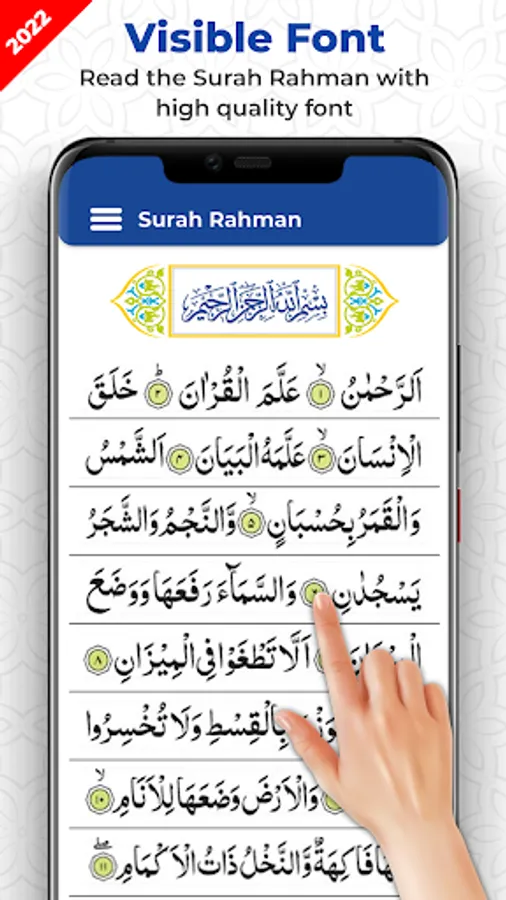 2022
Visible Font
Read the Surah Rahman with
high quality font
Surah Rahman
بِسْمِ اللّٰهِ الرَّحْمٰنِ الرَّحِيْمِ
اَلرَّحْمٰنُ ۙ﴿۱﴾ عَلَّمَ الْقُرْاٰنَ ؕ﴿۲﴾ خَلَقَ
الْاِنْسَانَ ۙ﴿۳﴾ عَلَّمَهُ الْبَيَانَ ﴿۴﴾ اَلشَّمْسُ
وَالْقَمَرُ بِحُسْبَانٍ ۙ﴿۵﴾ وَّالنَّجْمُ وَالشَّجَرُ
يَسْجُدٰنِ وَالسَّمَآءَ رَفَعَهَا وَوَضَعَ
اَلَّا تَطْغَوْا فِي الْمِيْزَانِ ﴿۸﴾
بِالْقِسْطِ وَلَا تُخْسِرُوا
وَالْاَرْضَ وَضَعَهَا لِلْاَنَامِ ۙ﴿۱۰﴾
فَاكِهَةٌ وَّالنَّخْلُ ذَاتُ الْاَكْمَامِ ۖ﴿۱۱﴾